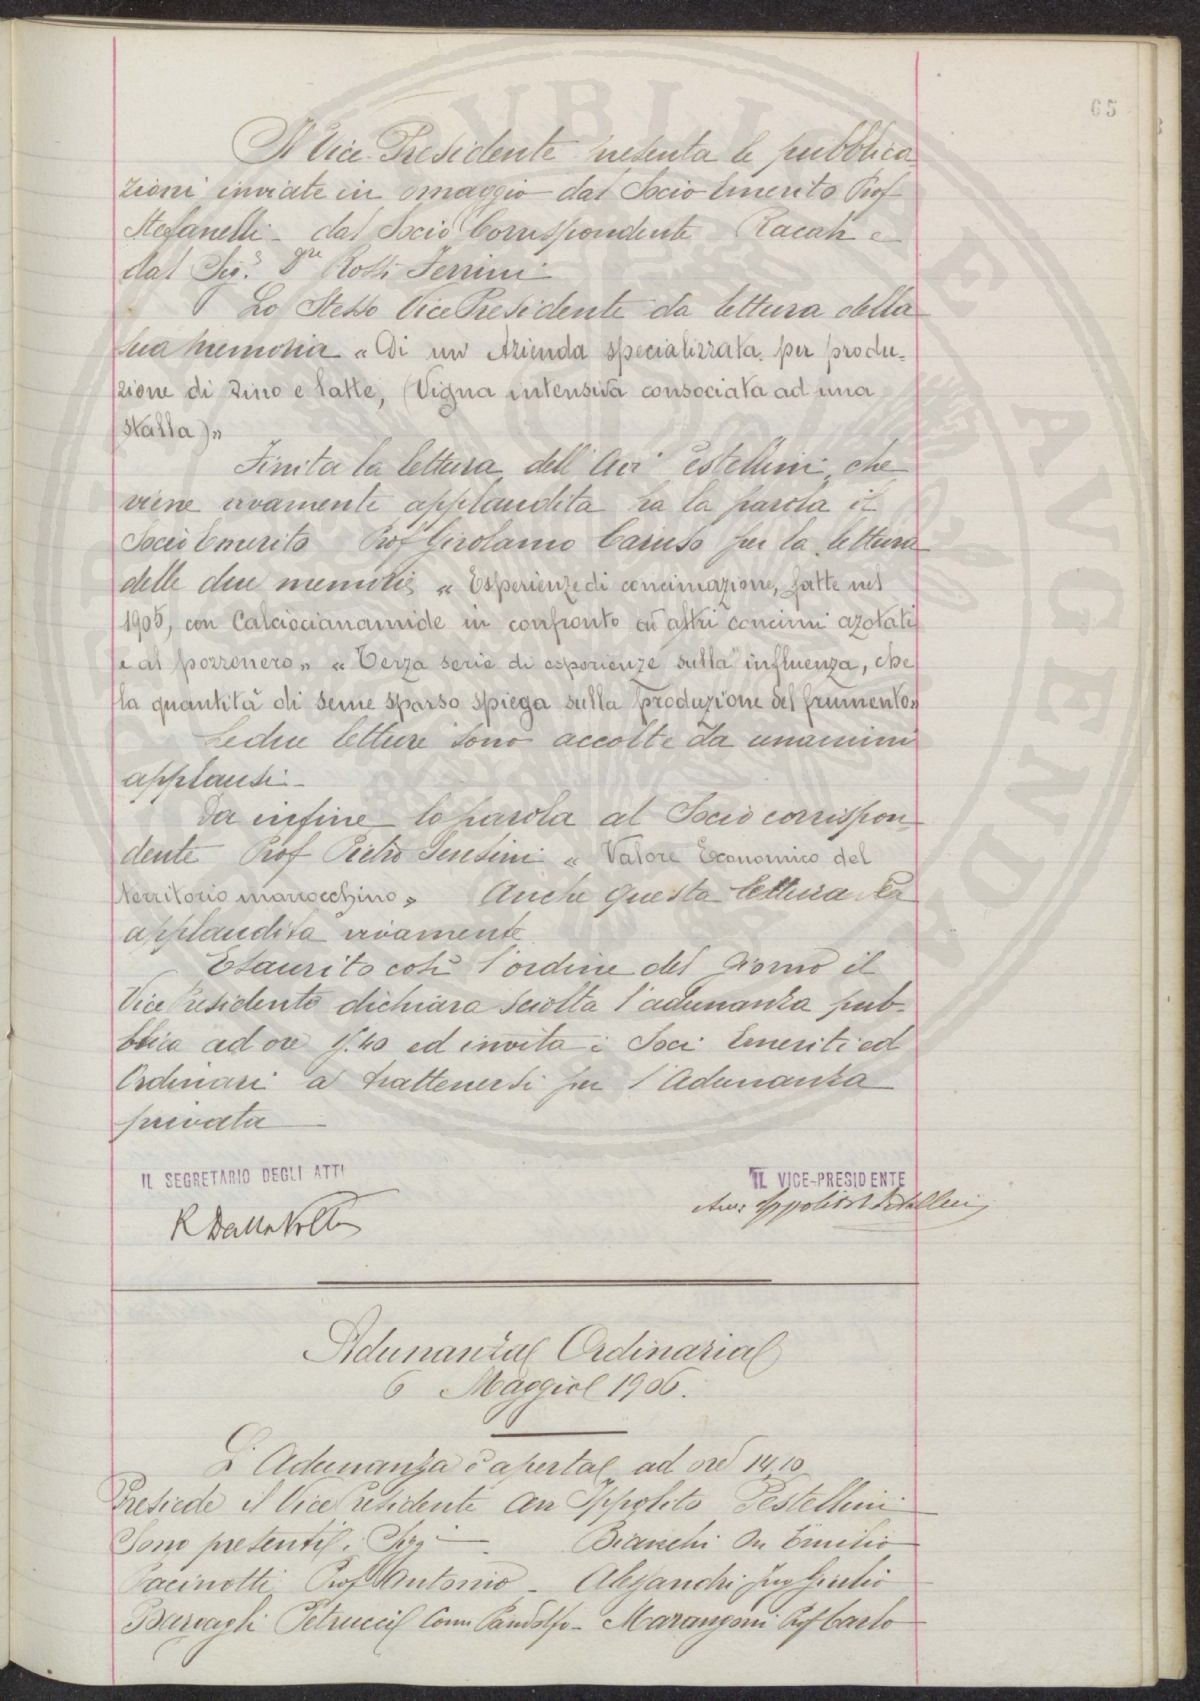 65
Il Vice-Presidente presenta le pubblica
zioni inviate in omaggio dal Socio Emerito Prof
Stefanelli - dal Socio Corrispondente Racah e
dal Sig.r Rossi Ferrini
Lo Stesso Vice Presidente da lettura della
sua memoria « Di un' Azienda specializzata per produ-
zione di vino e latte, (Vigna intensiva consociata ad una
stalla)»
Finita la lettura dell' Avv Pestellini, che
viene vivamente applaudita ha la parola il
Socio Emerito Prof Girolamo Caruso per la lettura
delle due memorie « Esperienze di concimazione, fatte nel
1905, con Calciocianamide in confronto ad altri concimi azotati
e al pozzonero » « Terza serie di esperienze sulla influenza, che
la quantità di seme sparso spiega sulla produzione del frumento»
Le due letture sono accolte da unanimi
applausi -
Da infine la parola al Socio corrispon-
dente Prof Pietro Sensini « Valore Economico del
territorio marrocchino » Anche questa lettura è
applaudita vivamente
Esaurito così l'ordine del giorno il
Vice Presidente dichiara sciolta l'adunanza pub-
blica ad ore 15.40 ed invita i Soci Emeriti ed
Ordinari a trattenersi per l'Adunanza
privata
IL SEGRETARIO DEGLI ATTI
IL VICE-PRESIDENTE
R Dalla Volta
Avv: Ippolito Pestellini
Adunanza Ordinaria
6 Maggio 1906.
L' Adunanza è aperta ad ore 14,10
Presiede il Vice Presidente Avv Ippolito Pestellini
Sono presenti i Sigg i - Bianchi On Emilio
Pacinotti Prof Antonio - Alessandri Ing Giulio
Bargagli Petrucci Conte Pandolfo - Marangoni Prof Carlo